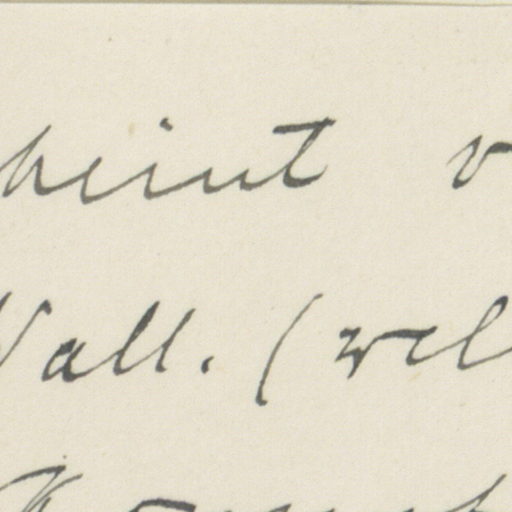 heint v
Wall. (wel